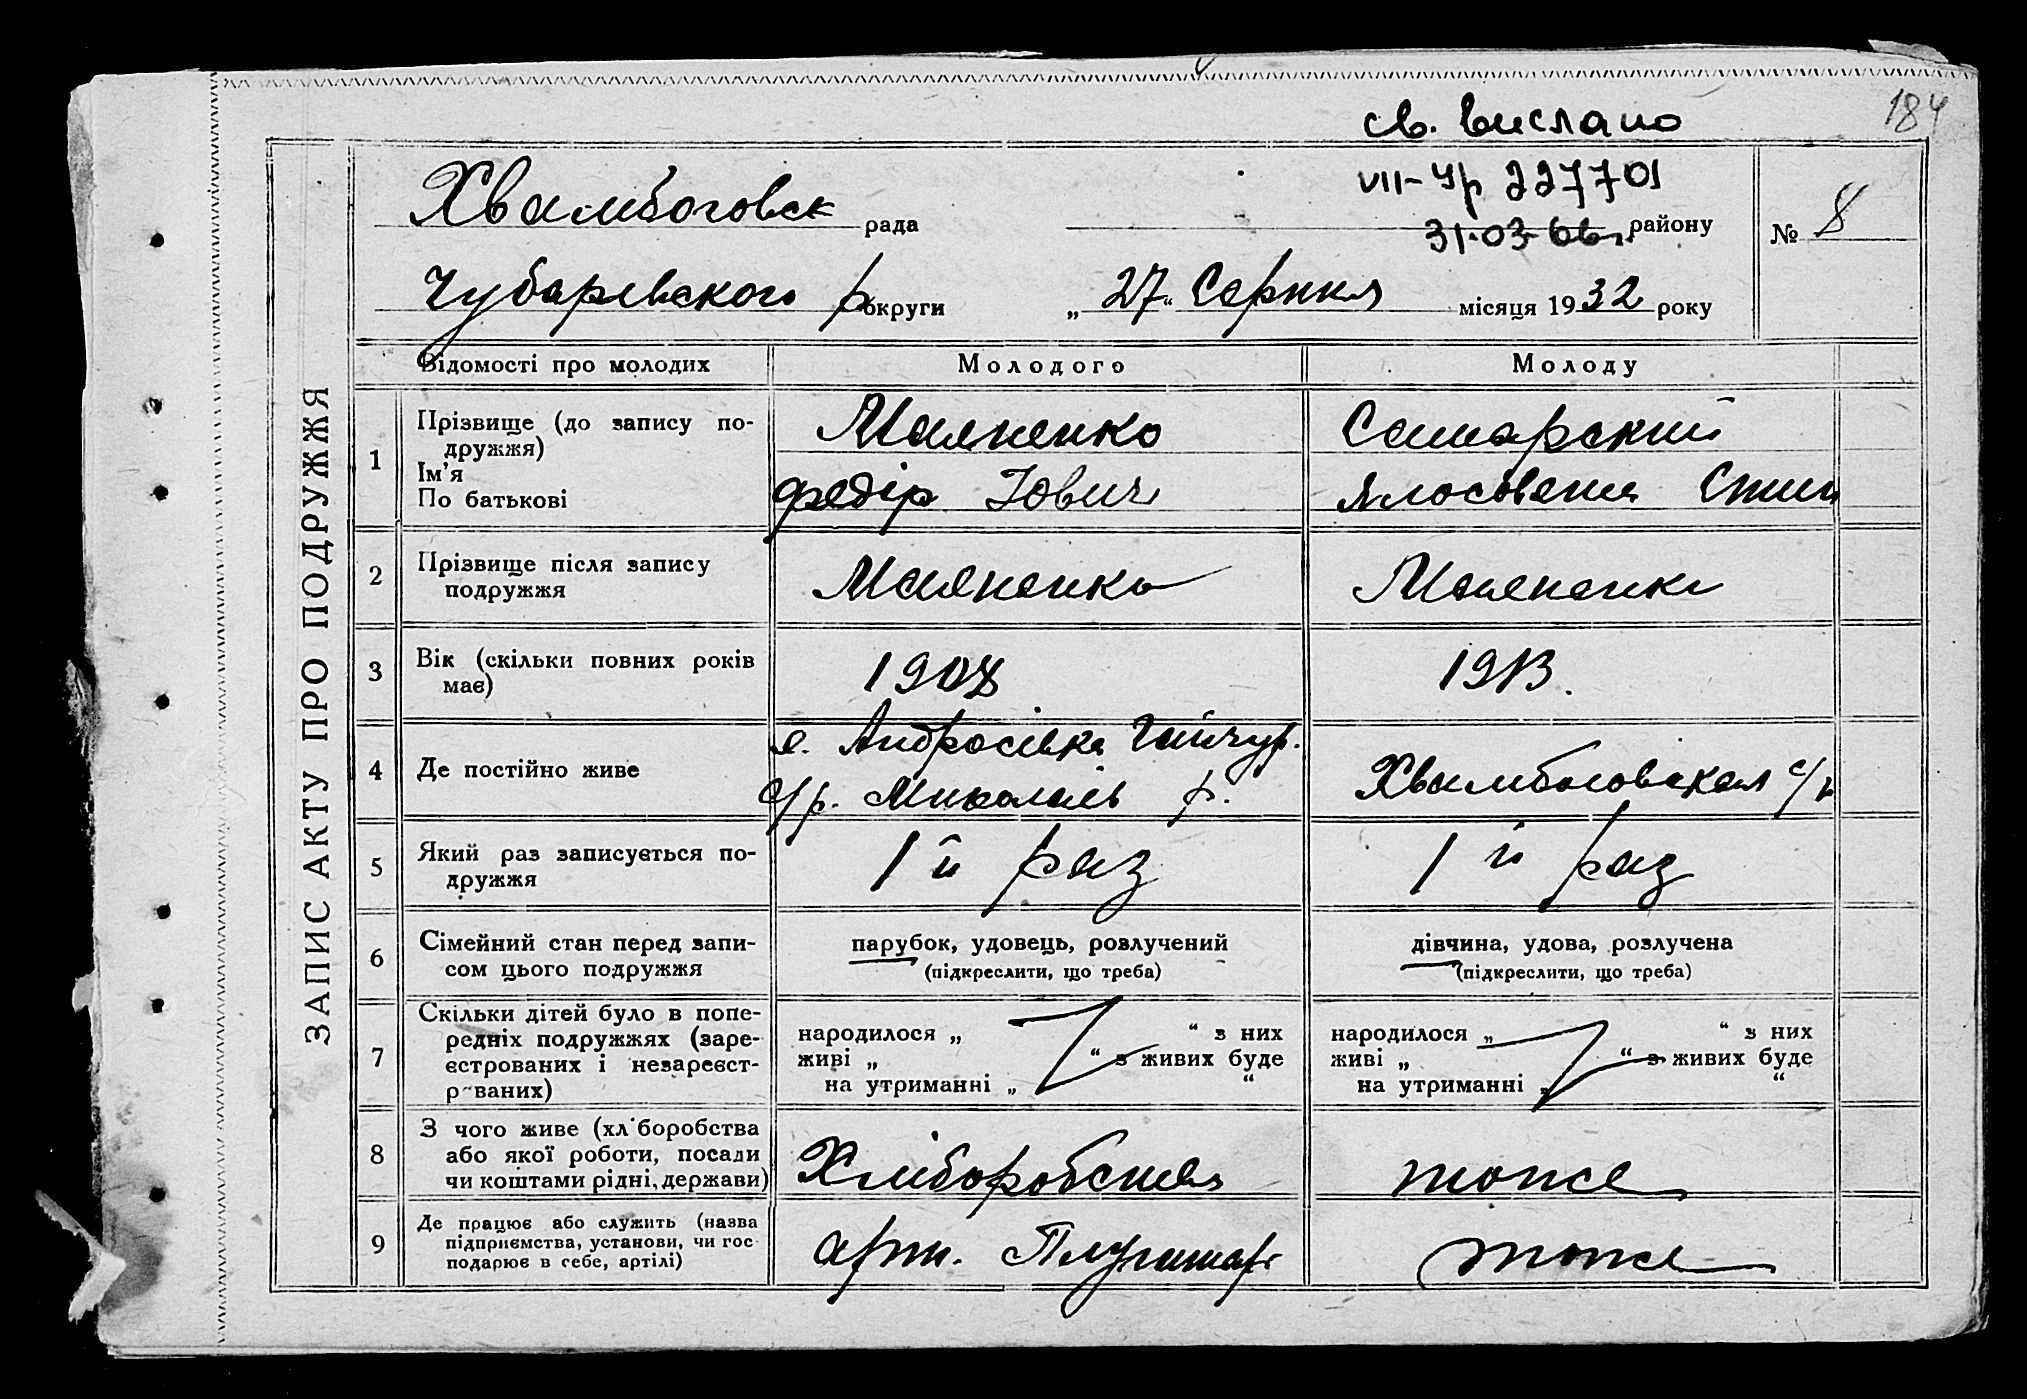 184
св. вислано
VII-Ур 227701
31.03.66г.
Хвалибоговск рада району № 8
Чубаревского р округи „27“ Серпня місяця 1932 року
ЗАПИС АКТУ ПРО ПОДРУЖЖЯ
Відомості про молодих Молодого Молоду
1 Прізвище (до запису по-
дружжя)
Ім’я
По батькові
Маляненко Самарский
Федір Йович
2 Прізвище після запису
подружжя
Маляненко Маляненко
3 Вік (скільки повних років
має)
1908 1913.
4 Де постійно живе
с. Андросівка Гайчур.
с/р. Миколаїв р.
Хвалибоговская с/р
5 Який раз записується по-
дружжя
1й раз 1й раз
6 Сімейний стан перед запи-
сом цього подружжя
парубок, удовець, розлучений
(підкреслити, що треба)
дівчина, удова, розлучена
(підкреслити, що треба)
7 Скільки дітей було в попе-
редніх подружжях (заре-
єстрованих і незареєст-
р ваних)
народилося „ “ з них
живі „ “ з живих буде
на утриманні „ “
народилося „ “ з них
живі „ “ з живих буде
на утриманні „ “
8 З чого живе (хліборобства
або якої роботи, посади
чи коштами рідні, держави)
Хліборобства тоже
9 Де працює або служить (назва
підприємства, установи, чи гос
подарює в себе, артілі)
арт. Плугатарь тоже